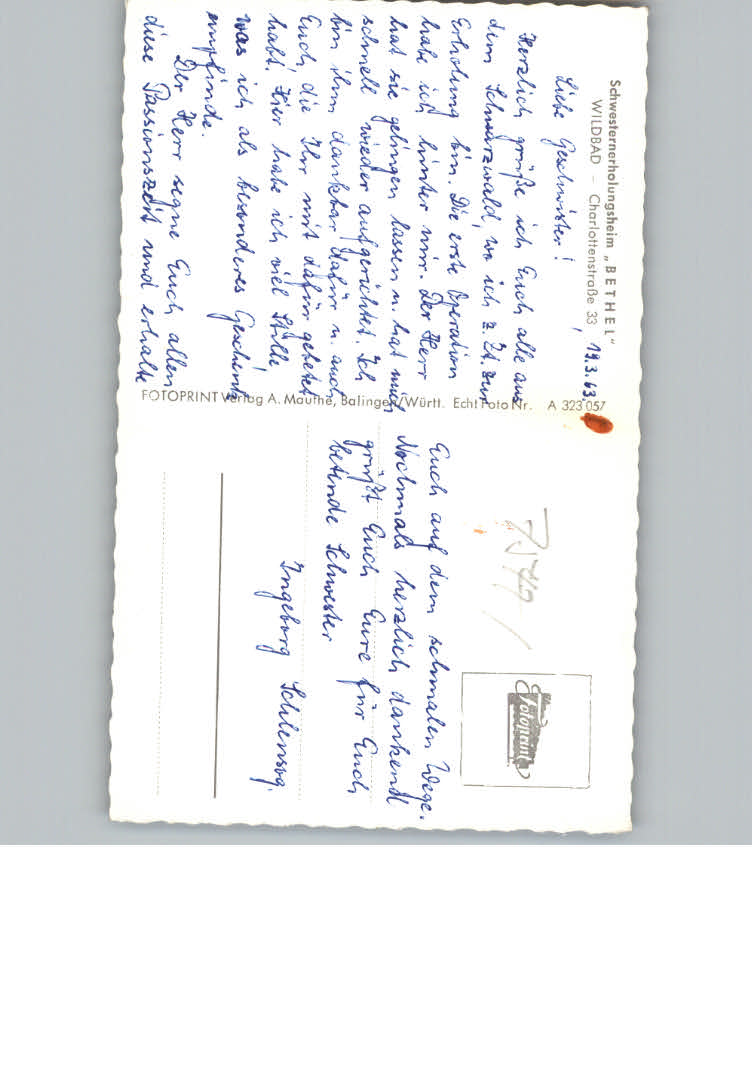 Schwesternerholungsheim „BETHEL"
WILDBAD – Charlottenstraße 33
19.3.63.
Liebe Geschwister!
Herzlich grüße ich Euch alle aus
dem Schwarzwald, wo ich z. Zt. zur
Erholung bin. Die erste Operation
habe ich hinter mir. Der Herr
hat sie gelingen lassen u. hat mich
schnell wieder aufgerichtet. Ich
bin ihm dankbar dafür u. auch
Euch, die Ihr mit dafür gebetet
habt. Hier habe ich viel Stille
was ich als besonderes Geschenk
empfinde.
Der Herr segne Euch allen
diese Passionszeit und erhalte
FOTOPRINT Verlag A. Mauthe, Balingen/Württ. Echt Foto Nr. A 323 057
Euch auf dem schmalen Wege.
Nochmals herzlich dankend
grüßt Euch Eure für Euch
betende Schwester
Ingeborg Schlensog.
Fotoprint